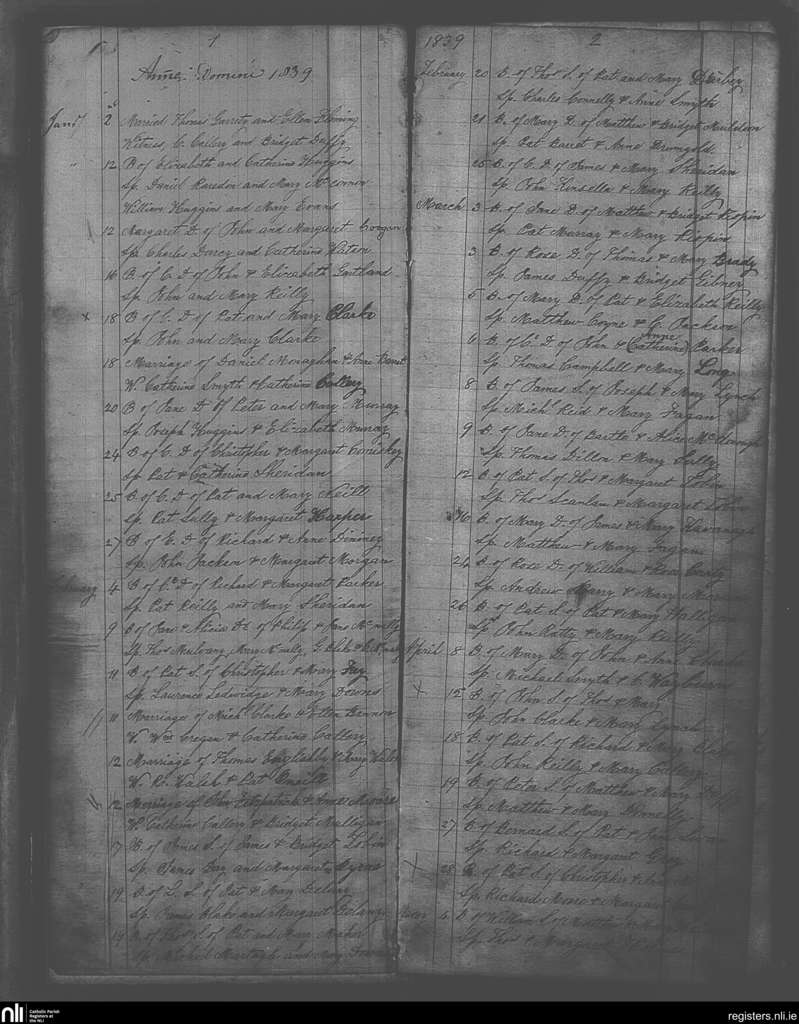 1
Anno Domini 1839
Jany 2 Married Thomas Garrety and Ellen Fleming
Witness, C. Callery and Bridget Duffy
" 12 B of Elizabeth and Catherine Huggins
Sp. Daniel and Mary
William Huggins and Mary Evans
12 Margaret D. of John and Margaret Coogan
Sp. Charles Darcy and Catherine Watson
16 B. of C. D of John & Elizabeth Gartland
Sp. John and Mary Reilly
x 18 B of C. D of Pat and Mary Clarke
Sp. John and Mary Clarke
18 Marriage of Daniel Monaghan & Anne
W. Catherine Smyth & Catherine Callery
20 B of Jane D of Peter and Mary Murray
Sp. Joseph Huggins & Elizabeth Murray
24 B of C. D of Christopher & Margaret Comiskey
Sp. Pat & Catherine Sheridan
25 B of C. D of Pat and Mary Neill
Sp. Pat Lully & Margaret Harper
27 B of E. D of Richard & Anne Dininey
Sp. John Jacken & Margaret Morgan
4 B of C. D of Richard & Margaret Parker
Sp. Pat Reilly and Mary Sheridan
9 B of Jane & Alicia Ds of Philip & Jane McNally
Sp. Thos Mulvany, Mary
11 B of Pat S. of Christopher & Mary Fay
Sp. Laurence Ledwidge & Mary Downs
// 11 Marriage of Mich Clarke & Ellen Bennon
W. Wm Cregan & Catherine Callery
12 Marriage of Thomas & Mary Walsh
W. R. Walsh & Pat Oneill
// 12 Marriage of Fitzpatrick & Anne Moore
W. Catherine Callery & Bridget Mulligan
17 B of James S. of James & Bridget Tobin
Sp. James Fay and Margaret Byrne
19 B of L. S. of Pat & Mary
Sp. James Blake and Margaret
19 B of Thos S. of Pat and Mary Maher
Sp. Michael Murtagh and Mary
1839
2
February 20 B. of Thos S. of Pat and Mary Darby
Sp. Charles Connelly & Anne Smyth
21 B. of Mary D. of Matthew & Bridget Muldoon
Sp. Pat Barret & Anne Drumgold
25 B. of C. D. of James & Mary Sheridan
Sp. John Kinsella & Mary Reilly
March 3 B. of Jane D. of Matthew & Bridget Kespin
Sp. Pat Murray & Mary Kespin
3 B. of Rose D. of Thomas & Mary Brady
Sp. James Duffy & Bridget Gibney
5 B. of Mary D. of Pat & Elizabeth Reilly
Sp. Matthew Coyne & C. Jackson
Anne
6 B. of C. D. of John & (Catherine) Parker
Sp. Thomas Campbell & Mary Long
8 B. of James S. of Joseph & Mary Lynch
Sp. Michl Reid & Mary Fagan
9 B. of Jane D. of Bartle & Alice
Sp. Thomas Dillon & Mary Tully
12 B. of Pat S. of Thos & Margaret Tobin
Sp. Thos Scanlan & Margaret Tobin
B. of Mary D. of James & Mary Kavanagh
Sp. Matthew & Mary Fagan
24 B. of Rose D. of William & Rose
Sp. Andrew & Mary
26 B. of Pat S. of Pat & Mary Halligan
Sp. John Ratty & Mary Reilly
April 8 B. of Mary D. of John & Anne
Sp. Michael Smyth & C.
x 12 B. of John S. of Thos & Mary
Sp. John Clarke & Mary Lynch
18 B. of Pat S. of Richard & Mary
Sp. John Reilly & Mary Callery
19 B. of Peter S. of Matthew & Mary Duffy
Sp. Matthew & Mary Donnelly
27 B. of Bernard S. of Pat & Jane
Sp. Richard & Margaret
x 28 B. of Pat S. of Christopher &
Sp. Richard Moore & Margaret
B of William S. of Matthew &
Sp. Thos & Margaret
nli
Catholic Parish
Registers at
the NLI
registers.nli.ie